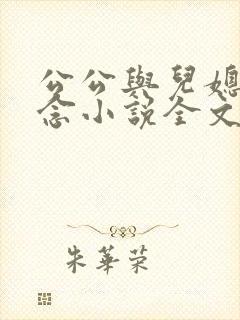 公公與兒媳
念小說全文
朱華榮